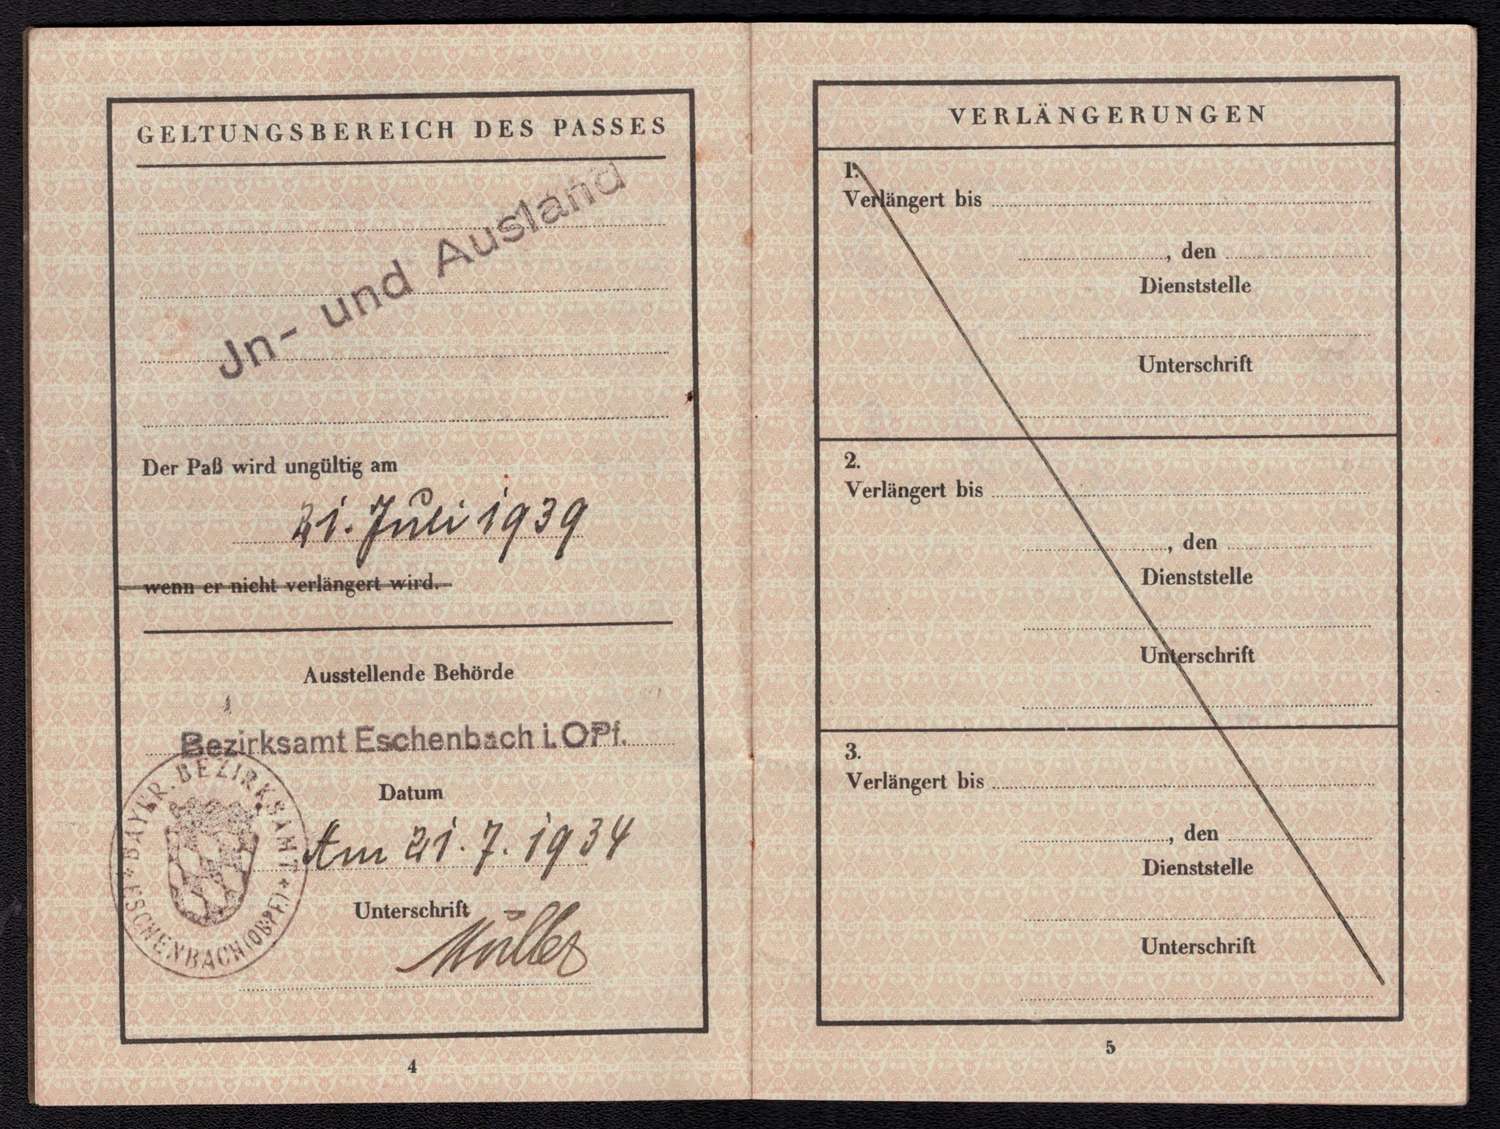 GELTUNGSBEREICH DES PASSES
Jn- und Ausland
Der Paß wird ungültig am
21. Juli 1939
wenn er nicht verlängert wird.
Ausstellende Behörde
Bezirksamt Eschenbach i. OPf.
Datum
Am 21. 7. 1934
Unterschrift
Müller
BAYER. BEZIRKSAMT * ESCHENBACH (OBPF.) *
4
VERLÄNGERUNGEN
1.
Verlängert bis
, den
Dienststelle
Unterschrift
2.
Verlängert bis
, den
Dienststelle
Unterschrift
3.
Verlängert bis
, den
Dienststelle
Unterschrift
5